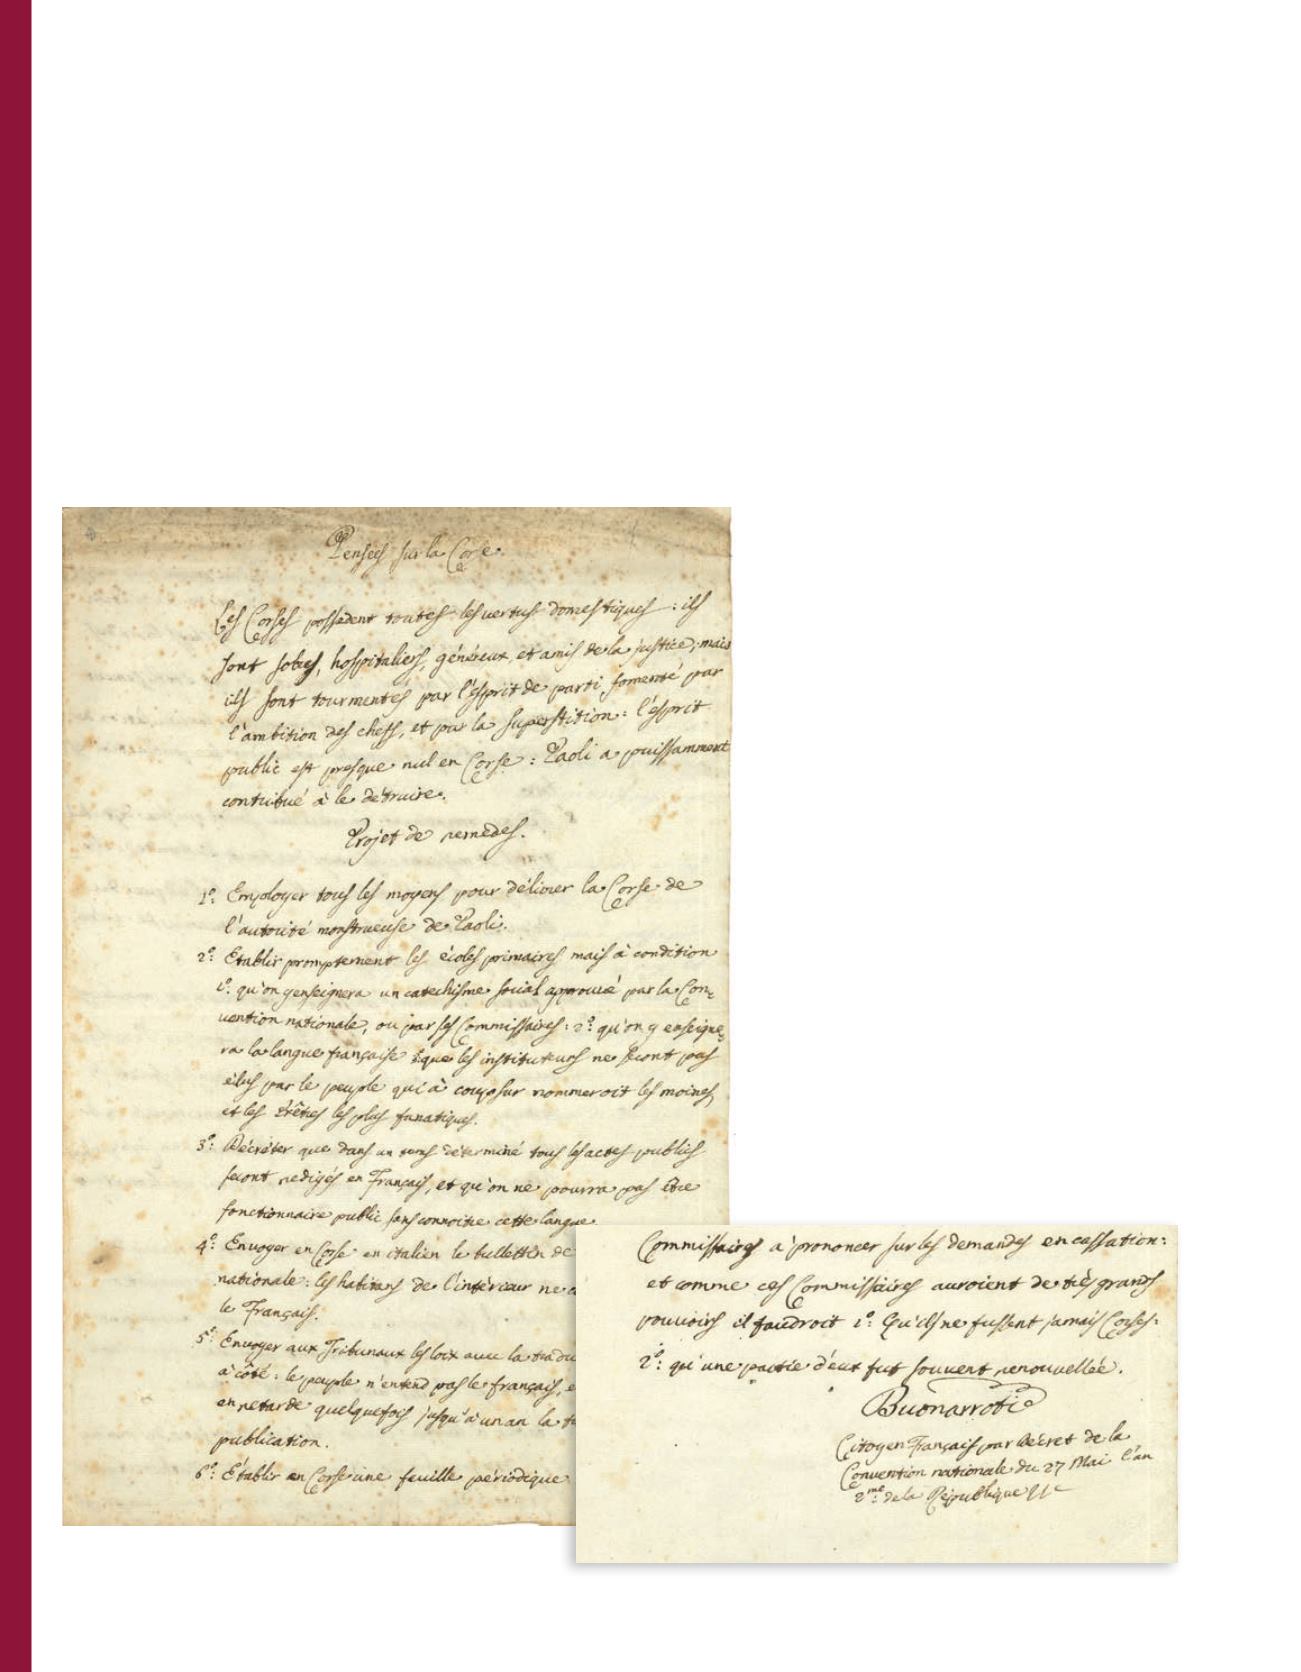 Pensées sur la Corse.
Les Corses possèdent toutes les vertus domestiques : ils
sont sobres, hospitaliers, généreux, et amis de la justice; mais
ils sont tourmentés par l'esprit de parti fomenté par
l'ambition des chefs, et par la superstition : l'esprit
public est presque nul en Corse : Paoli a puissamment
contribué à le détruire.
Projet de remedes.
1º: Employer tous les moyens pour délivrer la Corse de
l'autorité monstrueuse de Paoli.
2º: Etablir promptement les écoles primaires mais à condition
1º: qu'on y enseignera un catechisme social approuvé par la Con-
vention nationale, ou par ses Commissaires : 2º: qu'on y enseigne-
ra la langue française que les instituteurs ne seront pas
élus par le peuple qui à coup sur nommeroit les moines,
et les Prêtres les plus fanatiques.
3º: Décréter que dans un tems déterminé tous les actes publics
seront redigés en Français, et qu'on ne pourra pas être
fonctionnaire public sans connoitre cette langue.
4º: Envoyer en Corse en italien le bulletin de
nationale : les habitans de l'intérieur ne
le Français.
5º: Envoyer aux Tribunaux les loix avec la tradu
à côté : le peuple n'entend pas le français, e
en retarde quelquefois jusqu'à un an la
publication.
6º: Etablir en Corse une feuille périodique
Commissaires à prononcer sur les demandes en cassation :
et comme ces Commissaires auroient de très grands
pouvoirs il faudroit 1º: Qu'ils ne fussent jamais Corses :
2º: qu'une partie d'eux fut souvent renouvellée.
Buonarroti
Citoyen Français par Décret de la
Convention nationale du 27 Mai l'an
2me: de la République